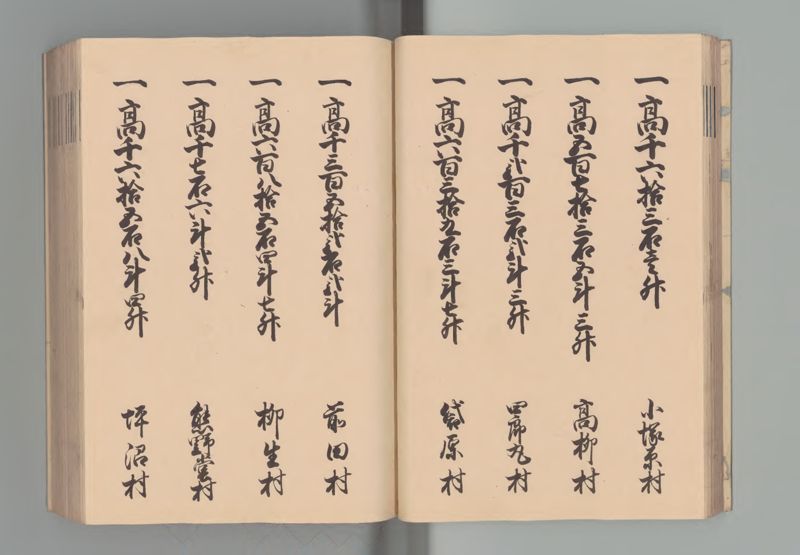 一高千六拾三石壱升 小塚原村
一高五百七拾三石五斗三升 高柳村
一高千弐百三石弐斗三升 四郎丸村
一高六百三拾九石三斗七升 袋原村
一高千三百五拾弐石弐斗 前田村
一高六百八拾五石四斗七升 柳生村
一高千七石六斗弐升 熊野堂村
一高千六拾五石八斗四升 坪沼村